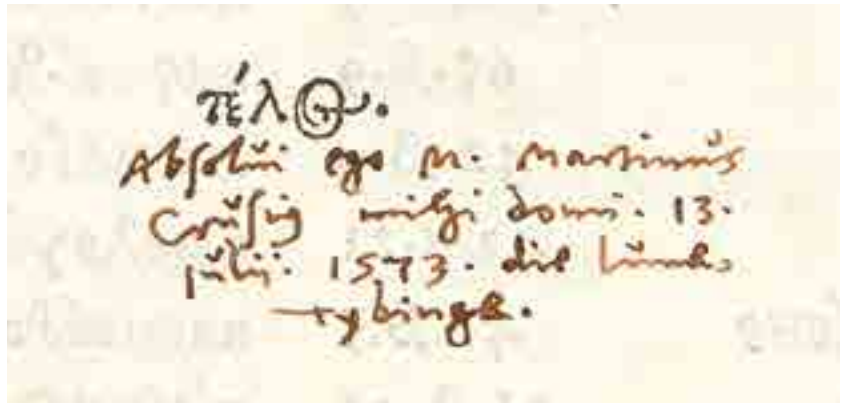 τέλος.
Absolui ego M. Martinus
Crusius mihi domi. 13.
Julii. 1573. die lunae
Tybingae.